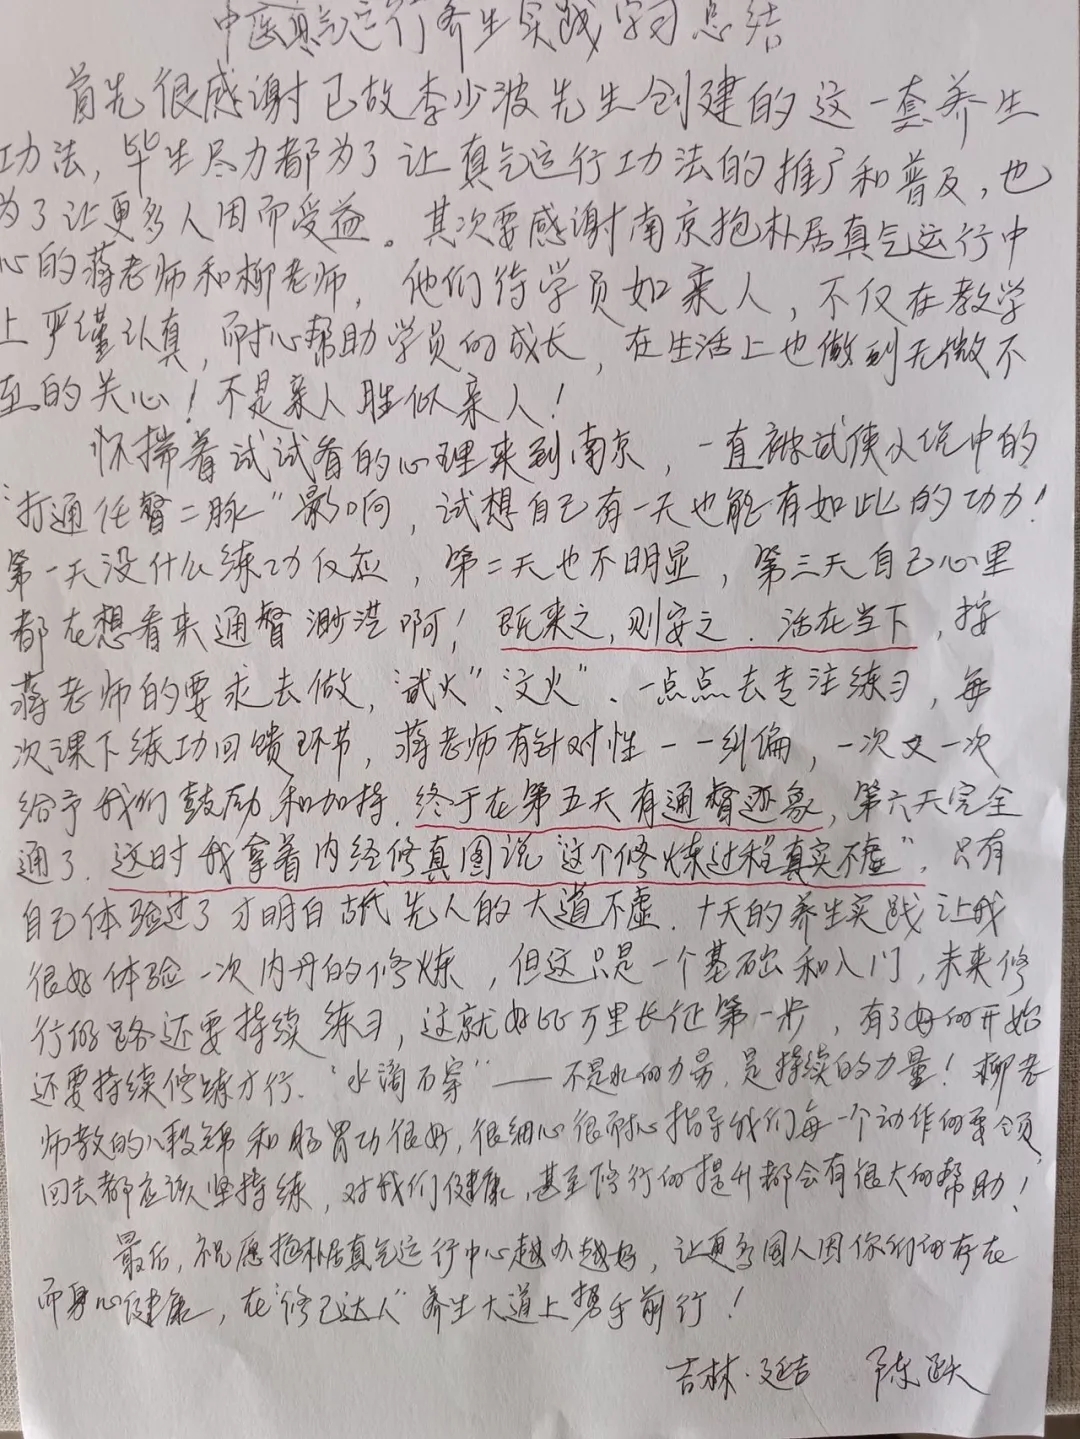 中医真气运行养生实践学习总结
首先很感谢已故李少波先生创建的这一套养生
功法，毕生尽力都为了让真气运行功法的推广和普及，也
为了让更多人因而受益。其次要感谢南京抱朴居真气运行中
心的蒋老师和柳老师，他们待学员如亲人，不仅在教学
上严谨认真，耐心帮助学员的成长，在生活上也做到无微不
至的关心！不是亲人胜似亲人！
怀揣着试试看的心理来到南京，一直被武侠小说中的
"打通任督二脉"影响，试想自己有一天也能有如此的功力！
第一天没什么练功反应，第二天也不明显，第三天自己心里
都在想看来通督渺茫啊！既来之，则安之．活在当下，按
蒋老师的要求去做，"武火"、"文火"、一点点去专注练习，每
次课下练功回馈环节，蒋老师有针对性一一纠偏，一次又一次
给予我们鼓励和加持．终于在第五天有通督迹象，第六天完全
通了．这时我拿着内经修真图说"这个修炼过程真实不虚"．只有
自己体验过了才明白古代先人的大道不虚．十天的养生实践让我
很好体验一次内丹的修炼，但这只是一个基础和入门，未来修
行的路还要持续练习，这就好比万里长征第一步，有了好的开始
还要持续修炼才行．"水滴石穿"——不是水的力量，是持续的力量！柳老
师教的八段锦和肠胃功很好，很细心很耐心指导我们每一个动作的要领
回去都应该坚持练，对我们健康，甚至修行的提升都会有很大的帮助！
最后，祝愿抱朴居真气运行中心越办越好，让更多国人因你们的存在
而身心健康，在"修己达人"养生大道上携手前行！
吉林·延吉 陈跃